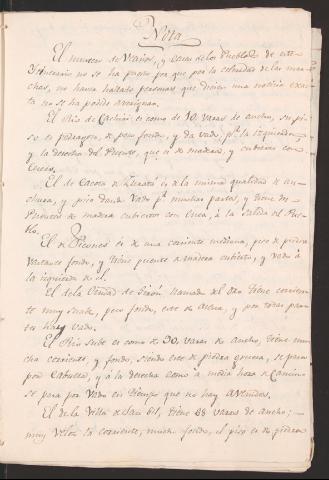 Nota
El numero de Varios, y Casas de los Pueblos de este
Itinerario no se ha puesto por que por la celeridad de las mar-
chas, no havia hallado personas que diesen una noticia exac-
ta no se ha podido averiguar.
El Rio de Cachiri es como de 10 varas de ancho, su pi-
so es pedragoso, de poco fondo, y da vado, pr. la izquierda
y la derecha del Puente, que es de madera, y cubierto con
El de Cacota de Suratá es de la misma qualidad de an-
chura, y piso dando vado pr. muchas partes, y tiene dos
Puentes de madera cubiertos con        , á la salida del Pue-
blo.
El de        es de una corriente mediana, piso de piedra
bastante fondo, y tiene puente de madera cubierto, y vado á
la izquierda de él.
El de la Ciudad de Girón llamado del Oro tiene corrien-
te muy suabe, poco fondo, este de Arena, y por todas par-
tes hay vado.
El Rio Sube es como de 30 varas de ancho, tiene mu-
cha corriente, y fondo, siendo este de piedra gruesa, se pasa
por Cabuya, y á la derecha como á media hora de camino
se pasa por vado en tiempo que no hay avenidas.
El de la Villa de San Gil, tiene 38 varas de ancho;
muy veloz la corriente, mucho fondo, el piso es de piedras